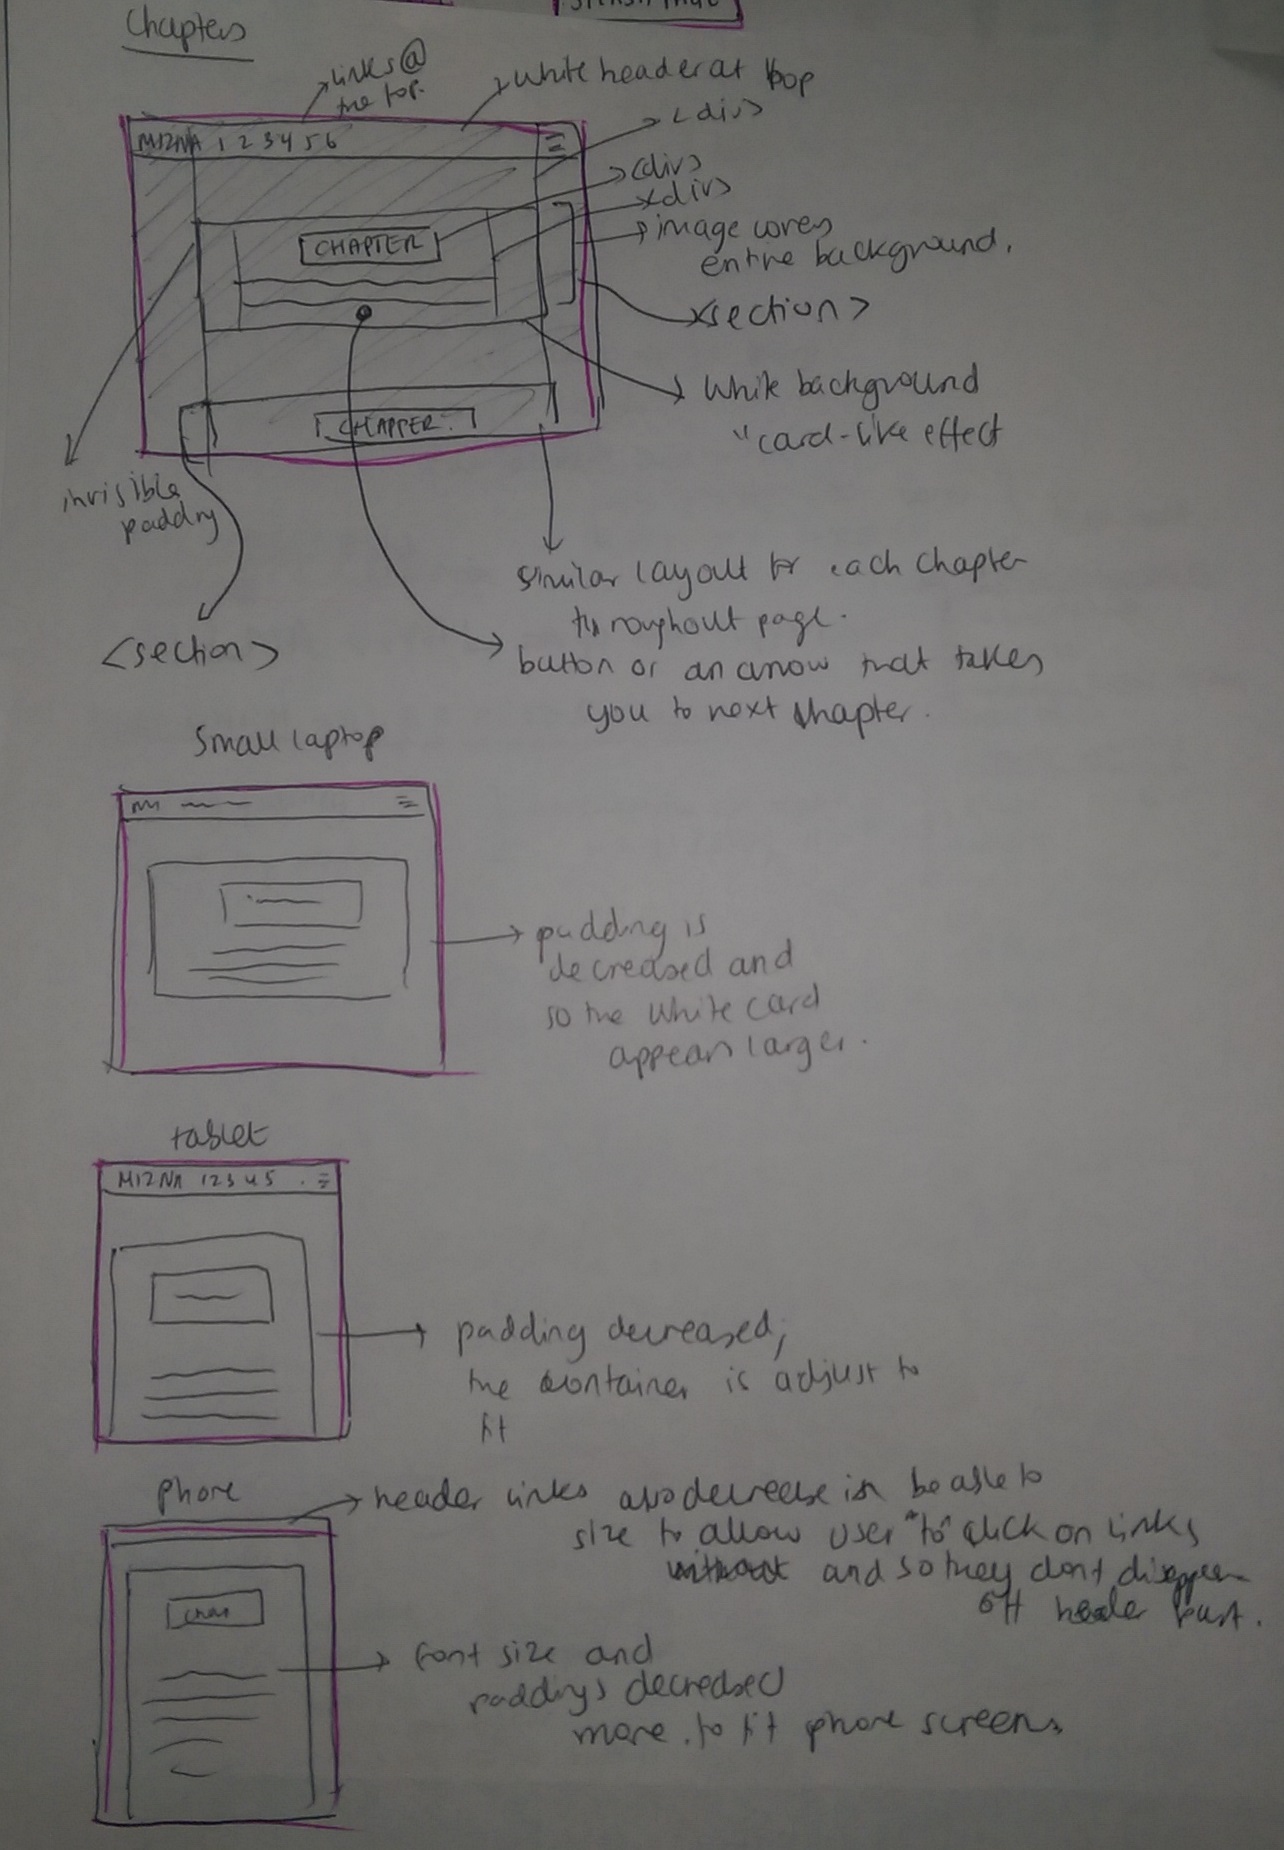 SPLASH PAGE
Chapters
links @
the top.
white header at top
<div>
MIZNA 1 2 3 4 5 6
<div>
<div>
image covers
entire background.
CHAPTER
<section>
white background
"card-like effect
CHAPTER.
invisible
padding
similar layout for each chapter
throughout page.
<section>
button or an arrow that takes
you to next chapter.
Small laptop
padding is
decreased and
so the white card
appears larger.
tablet
MIZNA 12345
padding decreased;
the container is adjust to
fit
phone
header links also decrease in be able to
size to allow user "to" click on links
and so they dont disappear
off header part.
font size and
paddings decreased
more to fit phone screens